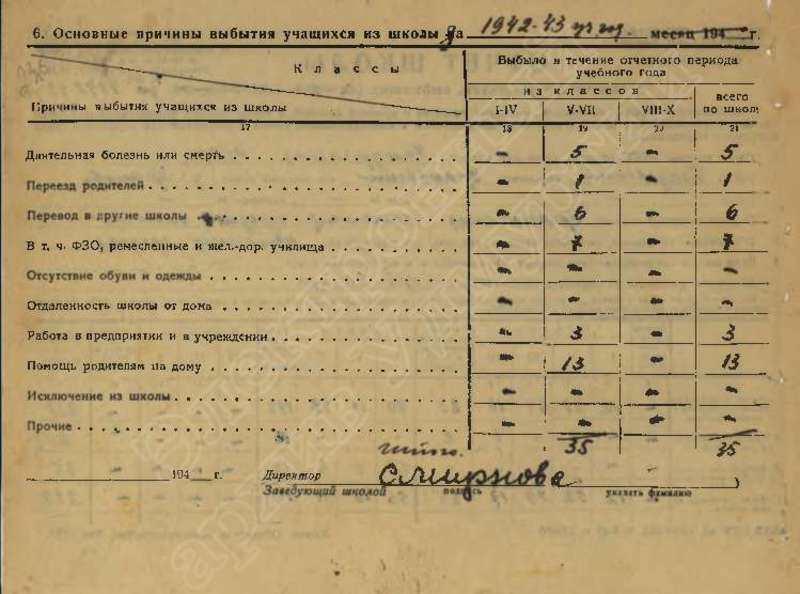 6. Основные причины выбытия учащихся из школы за 1942-43 уч. год. месяц 194 г.
Классы
Причины выбытия учащихся из школы
Выбыло в течение отчетного периода учебного года
из классов
I-IV V-VII VIII-X всего по школе
17 18 19 20 21
Длительная болезнь или смерть - 5 - 5
Переезд родителей - 1 - 1
Перевод в другие школы - 6 - 6
В т. ч. ФЗО, ремесленные и жел.-дор. училища - 7 - 7
Отсутствие обуви и одежды - - - -
Отдаленность школы от дома - - - -
Работа в предприятии и в учреждении - 3 - 3
Помощь родителям на дому - 13 - 13
Исключение из школы - - - -
Прочие - - - -
итого. 35 35
194 г. Директор Смирнова
Заведующий школой подпись указать фамилию